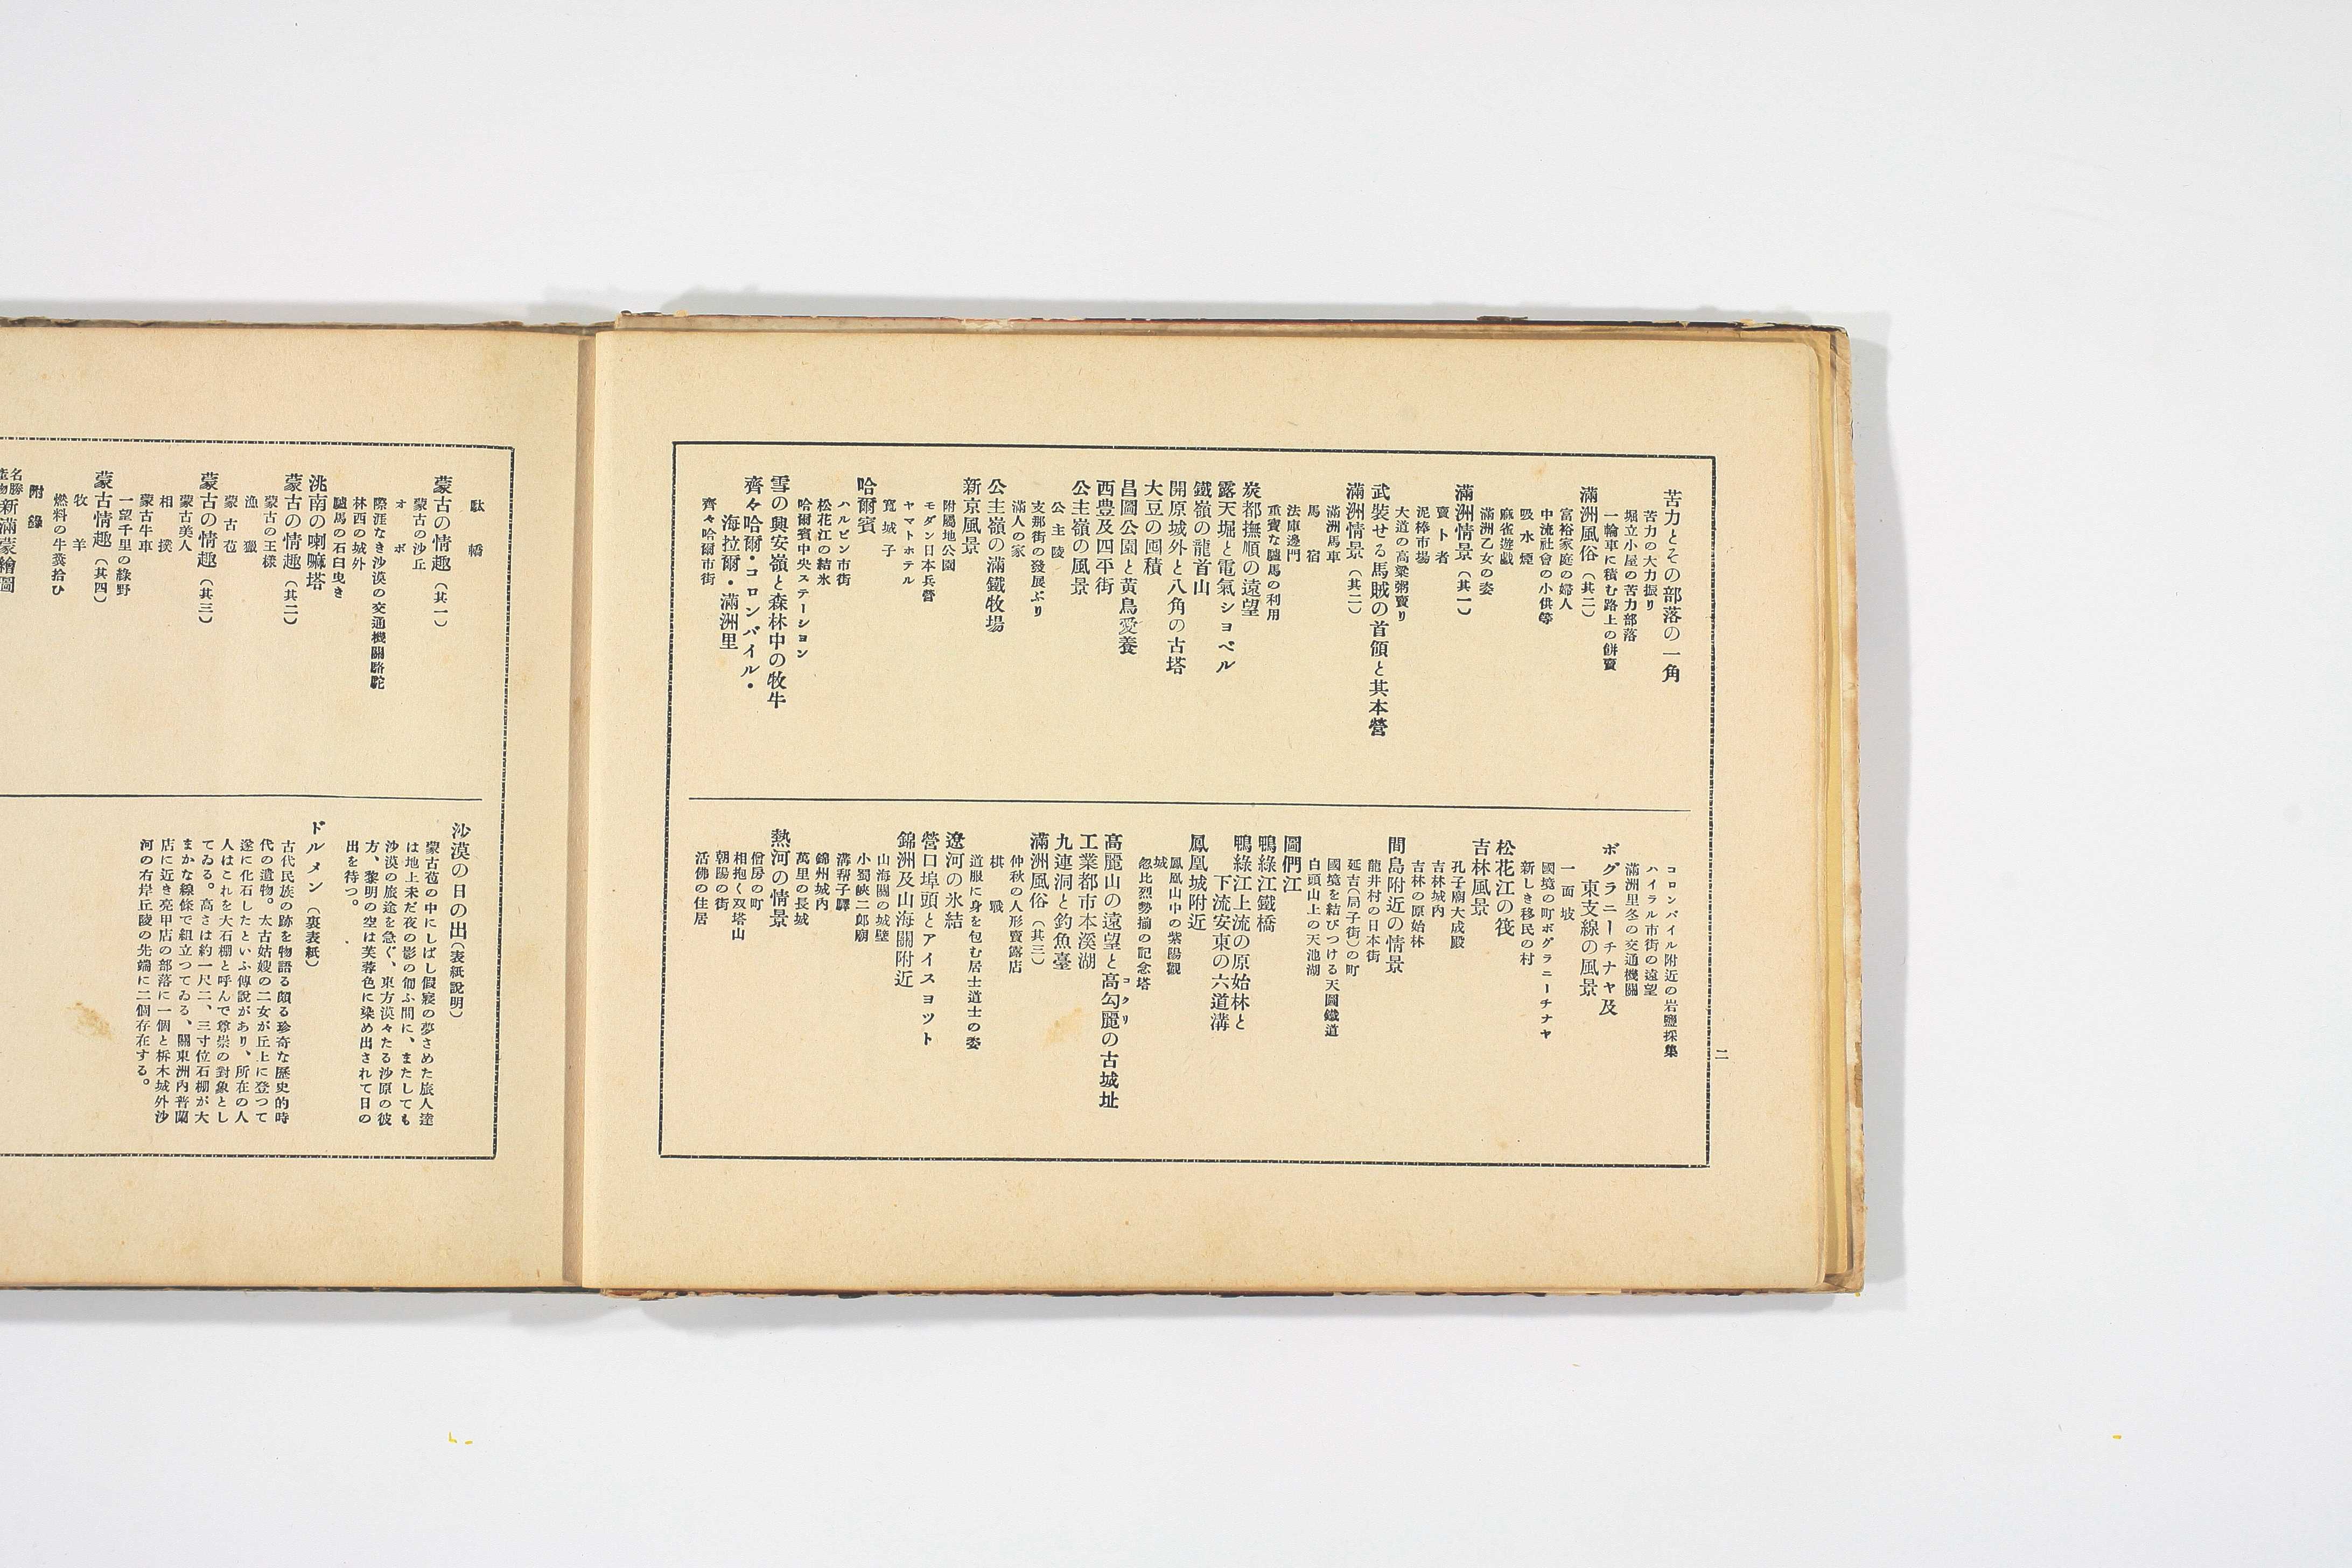 二
苦力とその部落の一角
苦力の大力振り
堀立小屋の苦力部落
一輪車に積む路上の餅賣
滿洲風俗（其二）
富裕家庭の婦人
中流社會の小供等
吸水煙
麻雀遊戯
滿洲乙女の姿
滿洲情景（其一）
賣卜者
泥棒市場
大道の高粱粥賣り
武裝せる馬賊の首領と其本營
滿洲情景（其二）
滿洲馬車
馬宿
法庫邊門
重寶な驢馬の利用
炭都撫順の遠望
露天堀と電氣ショベル
鐵嶺の龍首山
開原城外と八角の古塔
大豆の囤積
昌圖公園と黄鳥愛養
西豊及四平街
公主嶺の風景
公主陵
支那街の發展ぶり
滿人の家
公主嶺の滿鐵牧場
新京風景
附屬地公園
モダン日本兵營
ヤマトホテル
寛城子
哈爾賓
ハルビン市街
松花江の結氷
哈爾賓中央ステーション
雪の興安嶺と森林中の牧牛
齊々哈爾・コロンバイル・
海拉爾・滿洲里
齊々哈爾市街
コロンバイル附近の岩鹽採集
ハイラル市街の遠望
滿洲里冬の交通機關
ボグラニーチナヤ及
東支線の風景
一面坡
國境の町ボグラニーチナヤ
新しき移民の村
松花江の筏
吉林風景
孔子廟大成殿
吉林城内
吉林の原始林
間島附近の情景
龍井村の日本街
延吉（局子街）の町
國境を結びつける天圖鐵道
白頭山上の天池湖
圖們江
鴨綠江鐵橋
鴨綠江上流の原始林と
下流安東の六道溝
鳳凰城附近
鳳凰山中の紫陽觀
城
忽比烈勢揃の記念塔
高麗山の遠望と高勾麗の古城址
コクリ
工業都市本溪湖
九連洞と釣魚臺
滿洲風俗（其三）
仲秋の人形賣露店
棋戰
道服に身を包む居士道士の姿
遼河の氷結
營口埠頭とアイスヨット
錦洲及山海關附近
山海關の城壁
小蜀峽二郎廟
溝帮子驛
錦州城内
萬里の長城
熱河の情景
僧房の町
相抱く双塔山
朝陽の街
活佛の住居
駄轎
蒙古の情趣（其一）
蒙古の沙丘
オボ
際涯なき沙漠の交通機關駱駝
林西の城外
驢馬の石臼曳き
洮南の喇嘛塔
蒙古の情趣（其二）
蒙古の王樣
漁獵
蒙古苞
蒙古の情趣（其三）
蒙古美人
相撲
蒙古牛車
一望千里の綠野
蒙古情趣（其四）
牧羊
燃料の牛糞拾ひ
附錄
名勝
新滿蒙繪圖
沙漠の日の出（表紙說明）
蒙古苞の中にしばし假寢の夢さめた旅人達
は地上未だ夜の影の匍ふ間に、またしても
沙漠の旅途を急ぐ、東方漠々たる沙原の彼
方、黎明の空は芙蓉色に染め出されて日の
出を待つ。
ドルメン（裏表紙）
古代民族の跡を物語る頗る珍奇な歷史的時
代の遺物。太古姑嫂の二女が丘上に登つて
遂に化石したといふ傳說があり、所在の人
人はこれを大石棚と呼んで尊崇の對象とし
てゐる。高さは約一尺二、三寸位石棚が大
まかな線條で組立つてゐる、關東洲内普蘭
店に近き亮甲店の部落に一個と柝木城外沙
河の右岸丘陵の先端に二個存在する。